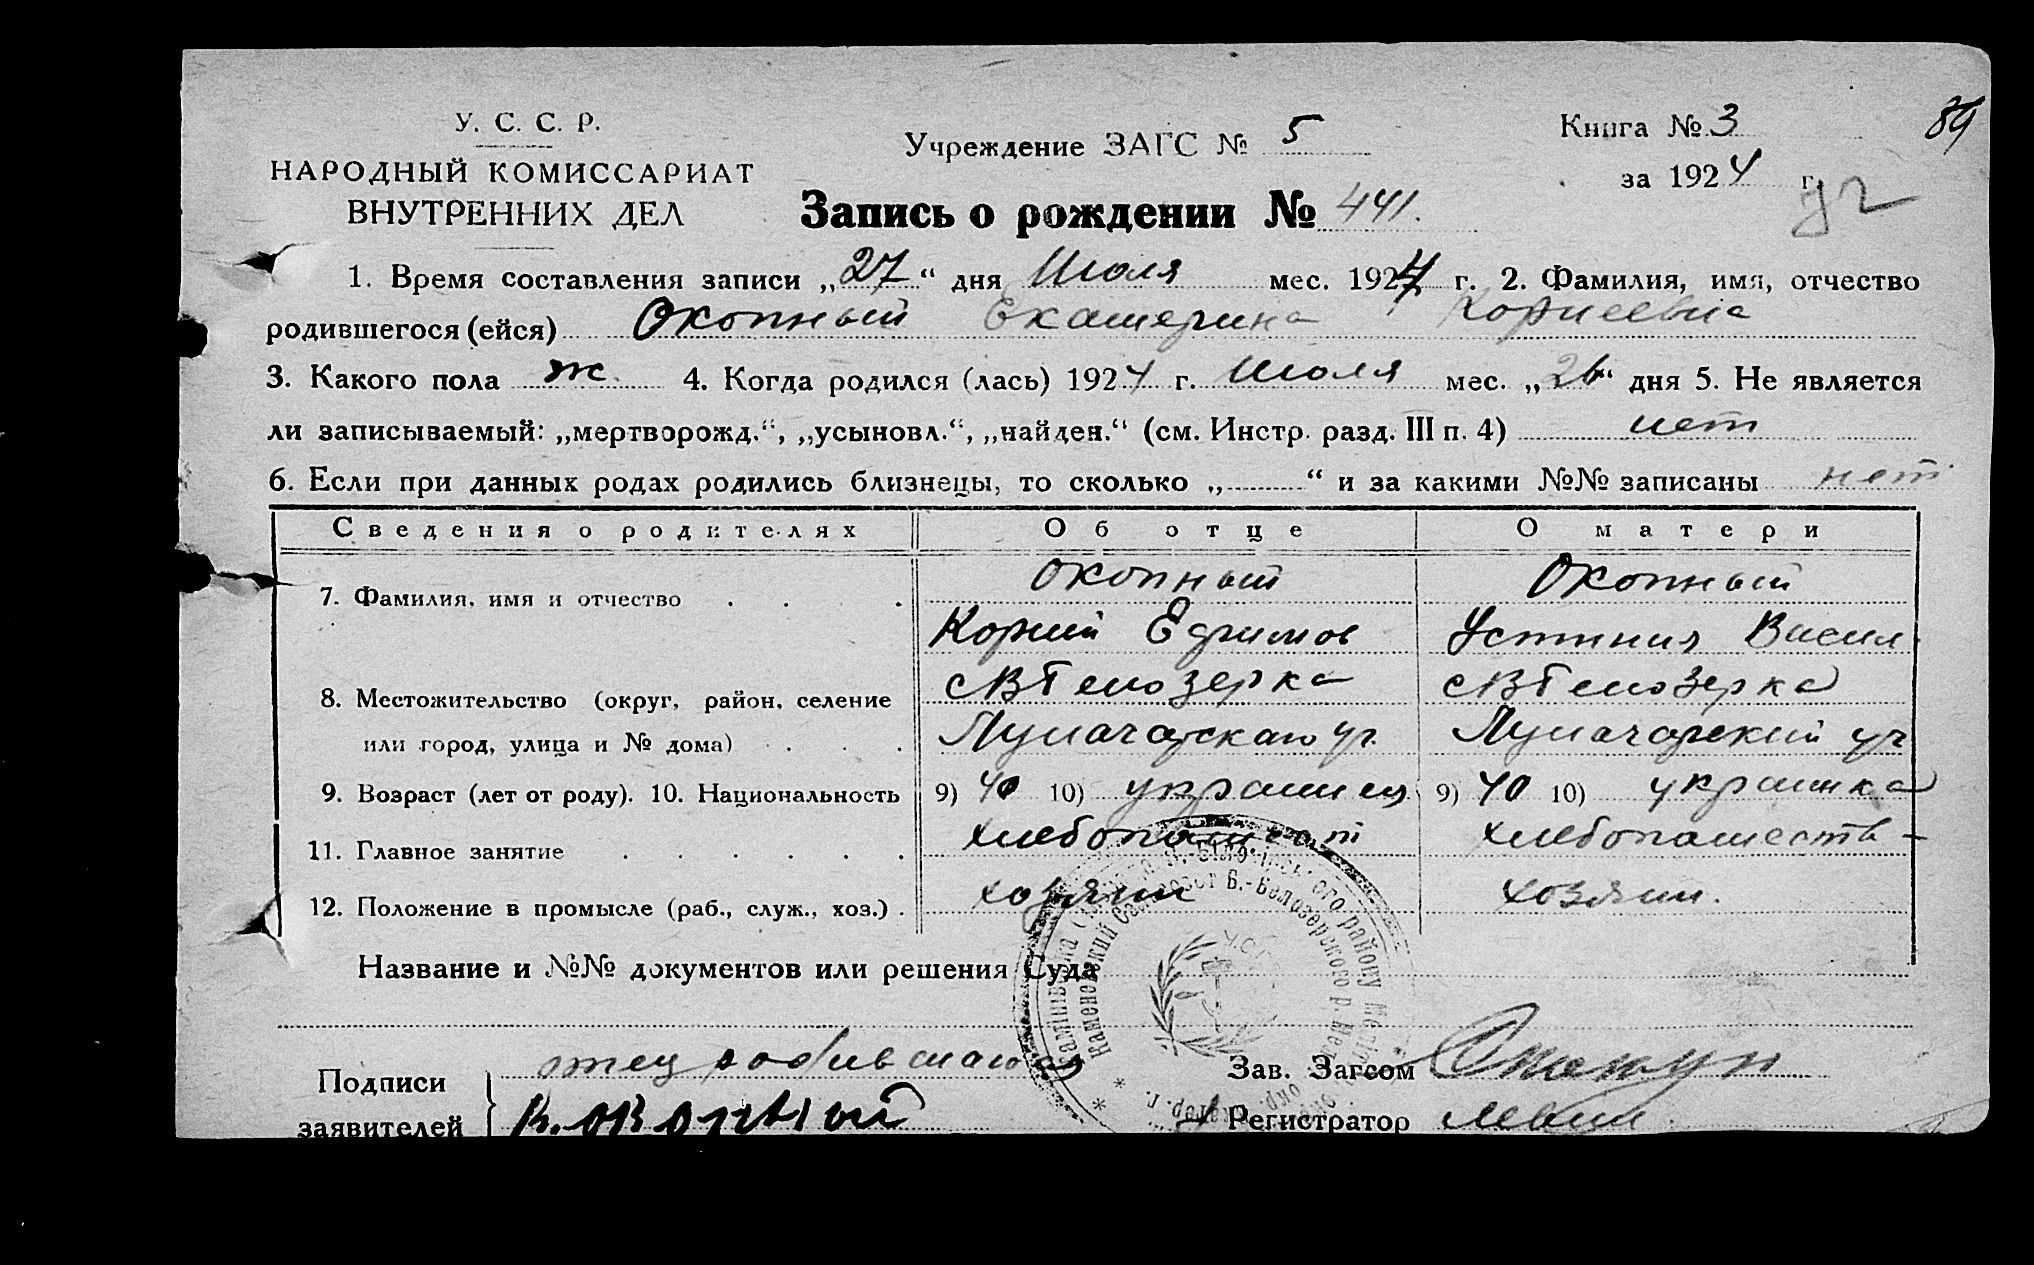 У. С. С. Р.
НАРОДНЫЙ КОМИССАРИАТ
ВНУТРЕННИХ ДЕЛ
Учреждение ЗАГС № 5
Книга № 3
за 1924 г.
89
Запись о рождении № 441.
1. Время составления записи „27“ дня Июля мес. 1924 г. 2. Фамилия, имя, отчество
родившегося (ейся) Окопный Екатерина Корнеевна
3. Какого пола ж. 4. Когда родился (лась) 1924 г. Июля мес. „26“ дня 5. Не является
ли записываемый: „мертворожд.“, „усыновл.“, „найден.“ (см. Инстр. разд. III п. 4) нет
6. Если при данных родах родились близнецы, то сколько „ “ и за какими №№ записаны нет
Сведения о родителях Об отце О матери
7. Фамилия, имя и отчество Окопный Окопный
Корний Ефимов Устиния Васил
8. Местожительство (округ, район, селение сВБелозерка сВБелозерка
или город, улица и № дома)
9. Возраст (лет от роду). 10. Национальность 9) 40 10) украинец 9) 40 10) украинка
11. Главное занятие хлебопашест хлебопашеств
12. Положение в промысле (раб., служ., хоз.) хозяин хозяин.
Название и №№ документов или решения Суда
Подписи
заявителей
отец
К. окопный
Зав. Загсом
Регистратор